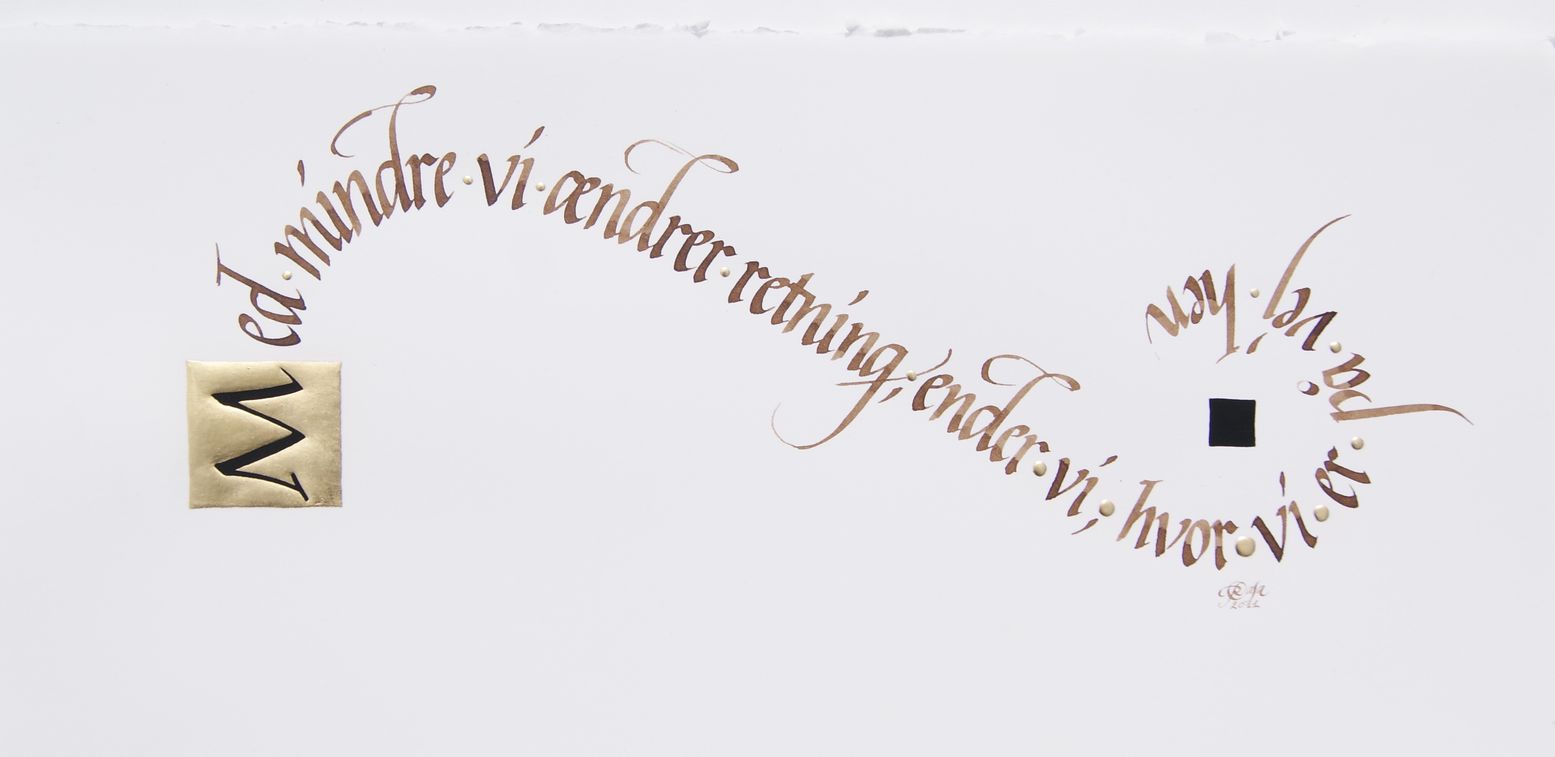 Med · mindre · vi · ændrer · retning, · ender · vi, · hvor · vi · er · på · vej · hen
2022